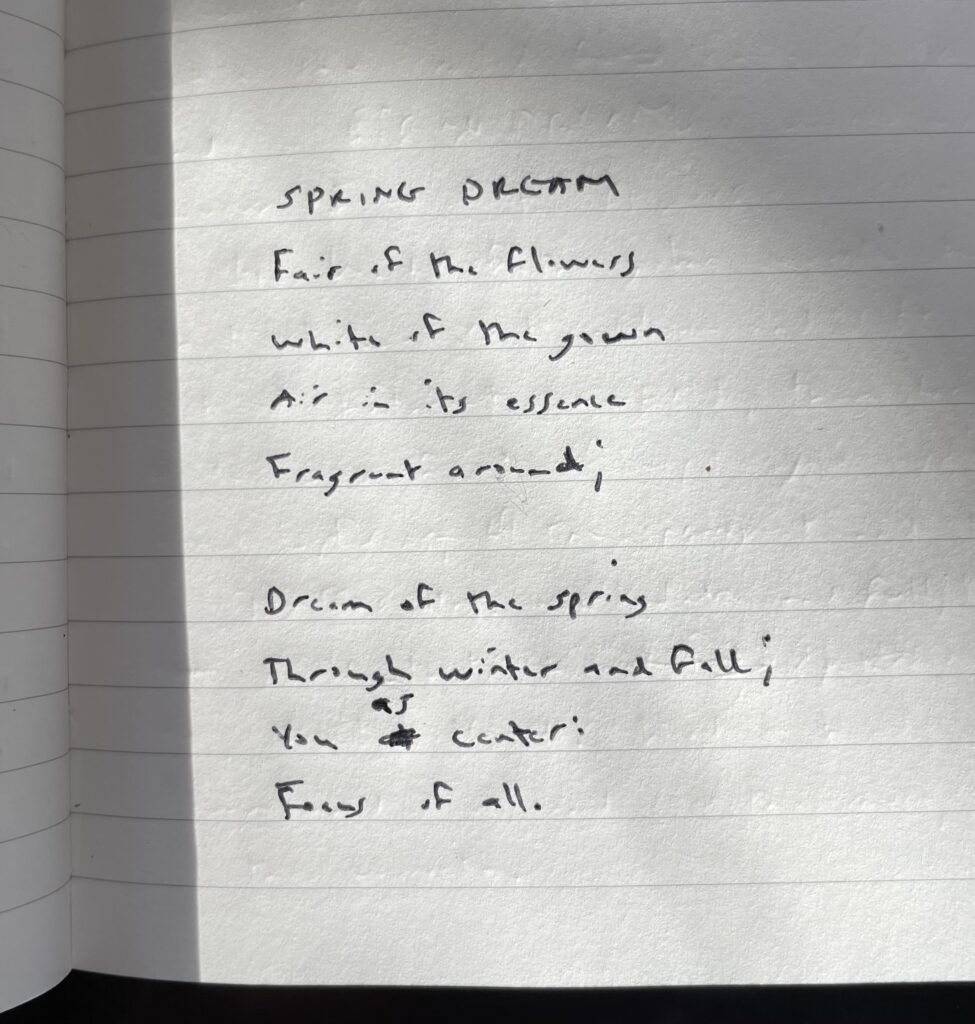 SPRING DREAM
Fair of the flowers
White of the gown
Air in its essence
Fragrant around;
Dream of the spring
Through winter and fall;
as
You center:
Focus of all.